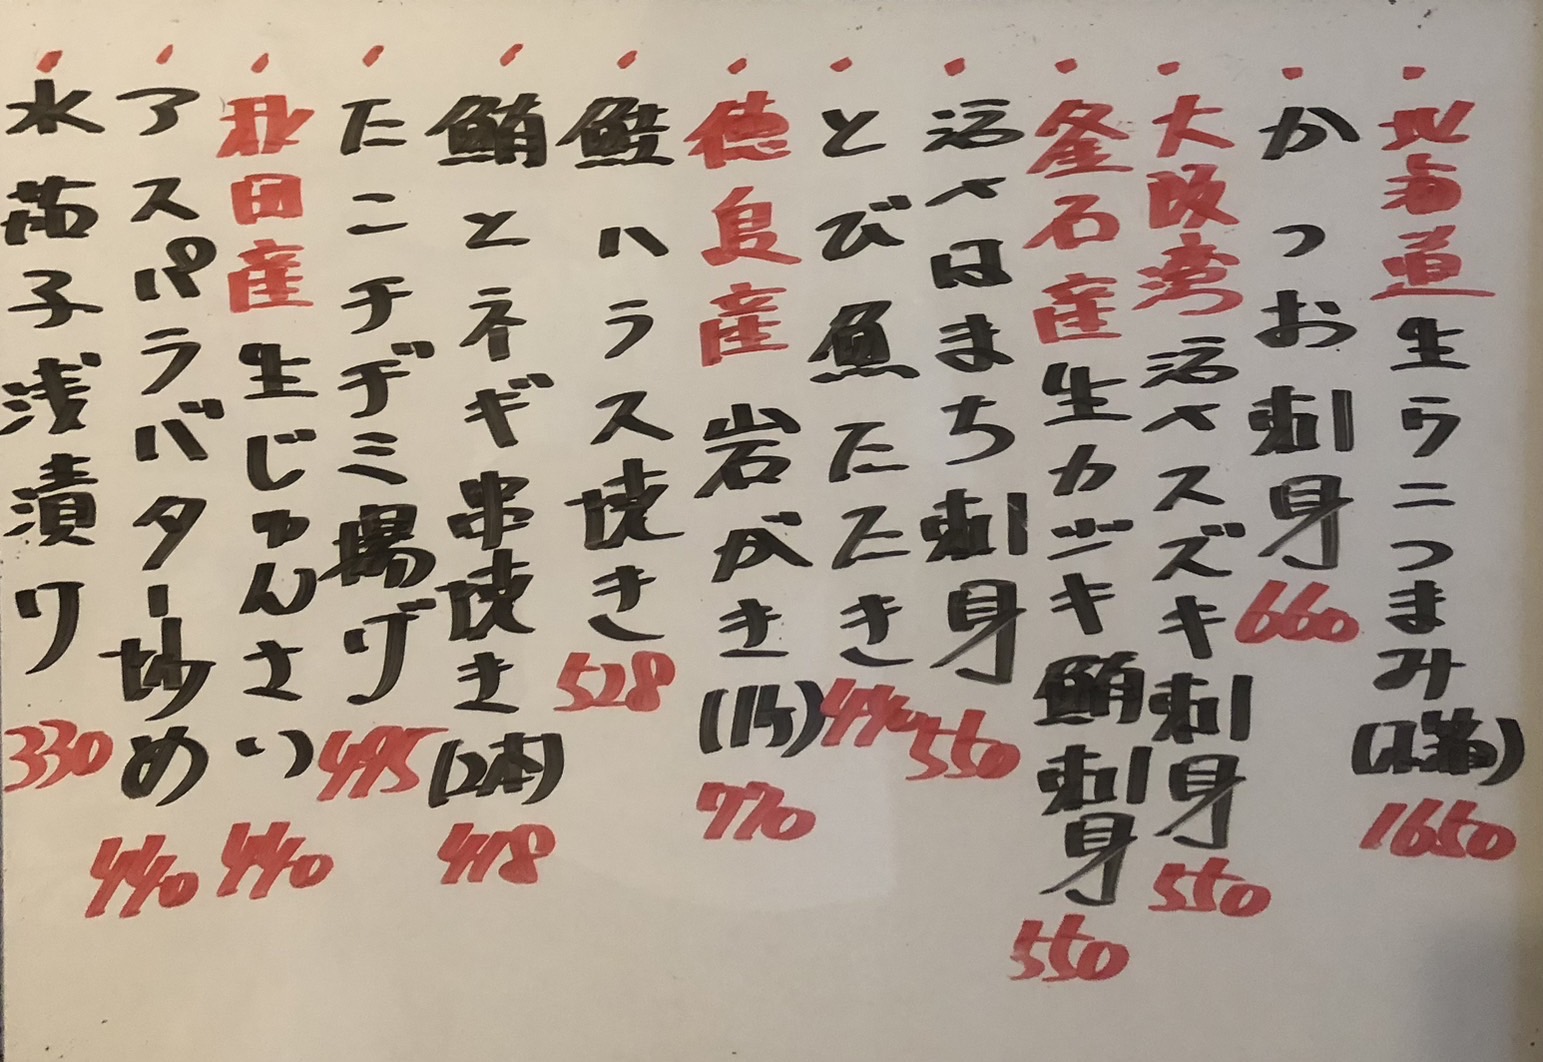 北海道生ウニつまみ(1箱)1650
かつお刺身660
大阪湾活〆スズキ刺身550
釜石産生カジキ鮪刺身550
活〆はまち刺身550
とび魚たたき440
徳島産岩がき(1ヶ)770
鮭ハラス焼き528
鮪とネギ串焼き(2本)418
たこチヂミ揚げ495
秋田産生じゅんさい440
アスパラバター炒め440
水茄子浅漬け330